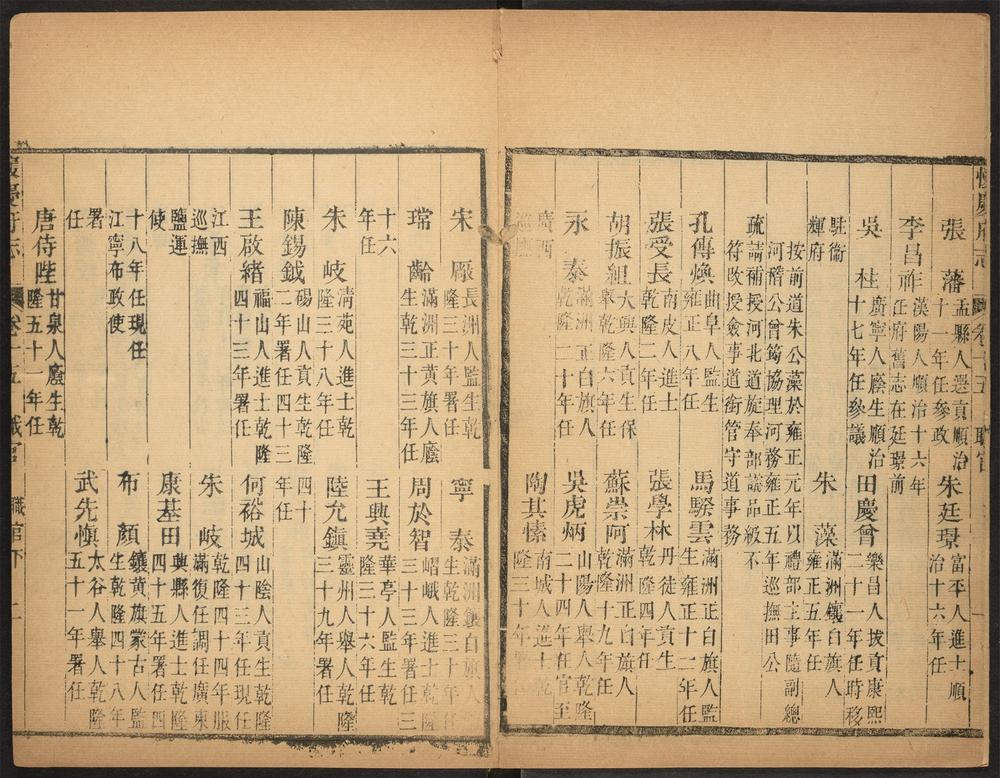 張藩孟縣人選貢順治十一年任參政朱廷璟富平人進士順治十六年任
李昌祚漢陽人順治十六年任府舊志在廷璟前
吳柱廣寧人廕生順治十七年任參議田慶曾樂昌人拔貢康熙二十一年任時移
駐衛輝府朱藻滿洲鑲白旗人雍正五年任
按前道朱公藻於雍正元年以禮部主事隨副總河嵇公曾筠協理河務雍正五年巡撫田公
疏請補授河北道旋奉部議品級不符改授僉事道銜管守道事務
孔傳煥曲阜人監生雍正八年任馬騄雲滿洲正白旗人監生雍正十二年任
張受長南皮人進士乾隆二年任張學林丹徒人貢生乾隆四年任
胡振組大興人貢生保舉乾隆六年任蘇崇阿滿洲正白旗人乾隆十九年任
永泰滿洲正白旗人乾隆二十年任吳虎炳山陽人舉人乾隆二十四年任官至
廣西巡撫陶其愫南城人進士乾隆三十年署
宋厫長洲人貢生乾隆三十年署任寧泰滿洲鑲白旗人生乾隆三十年任
瑺齡滿洲正黄旗人廕生乾三十三年任周於智嶍峨人進士乾隆三十三年署任三
十六年任王興堯華亭人監生乾隆三十六年任
朱岐清苑人進士乾隆三十八年任陸允鎮靈州人舉人乾隆三十九年署任
陳錫鉞碭山人貢生乾隆四十二年署任四十三年任
王啟緒福山人進士乾隆四十三年署任何裕城山陰人貢生乾隆四十三年任現任
江西巡撫朱岐乾隆四十四年服滿復任調任廣東
鹽運使康基田興縣人進士乾隆四十五年署任四
十八年任現任江寧布政使布顏鑲黄旗蒙古人監生乾隆四十八年
署任武先愼太谷人舉人乾隆五十一年署任
唐侍陛甘泉人廕生乾隆五十一年任
職官下 二